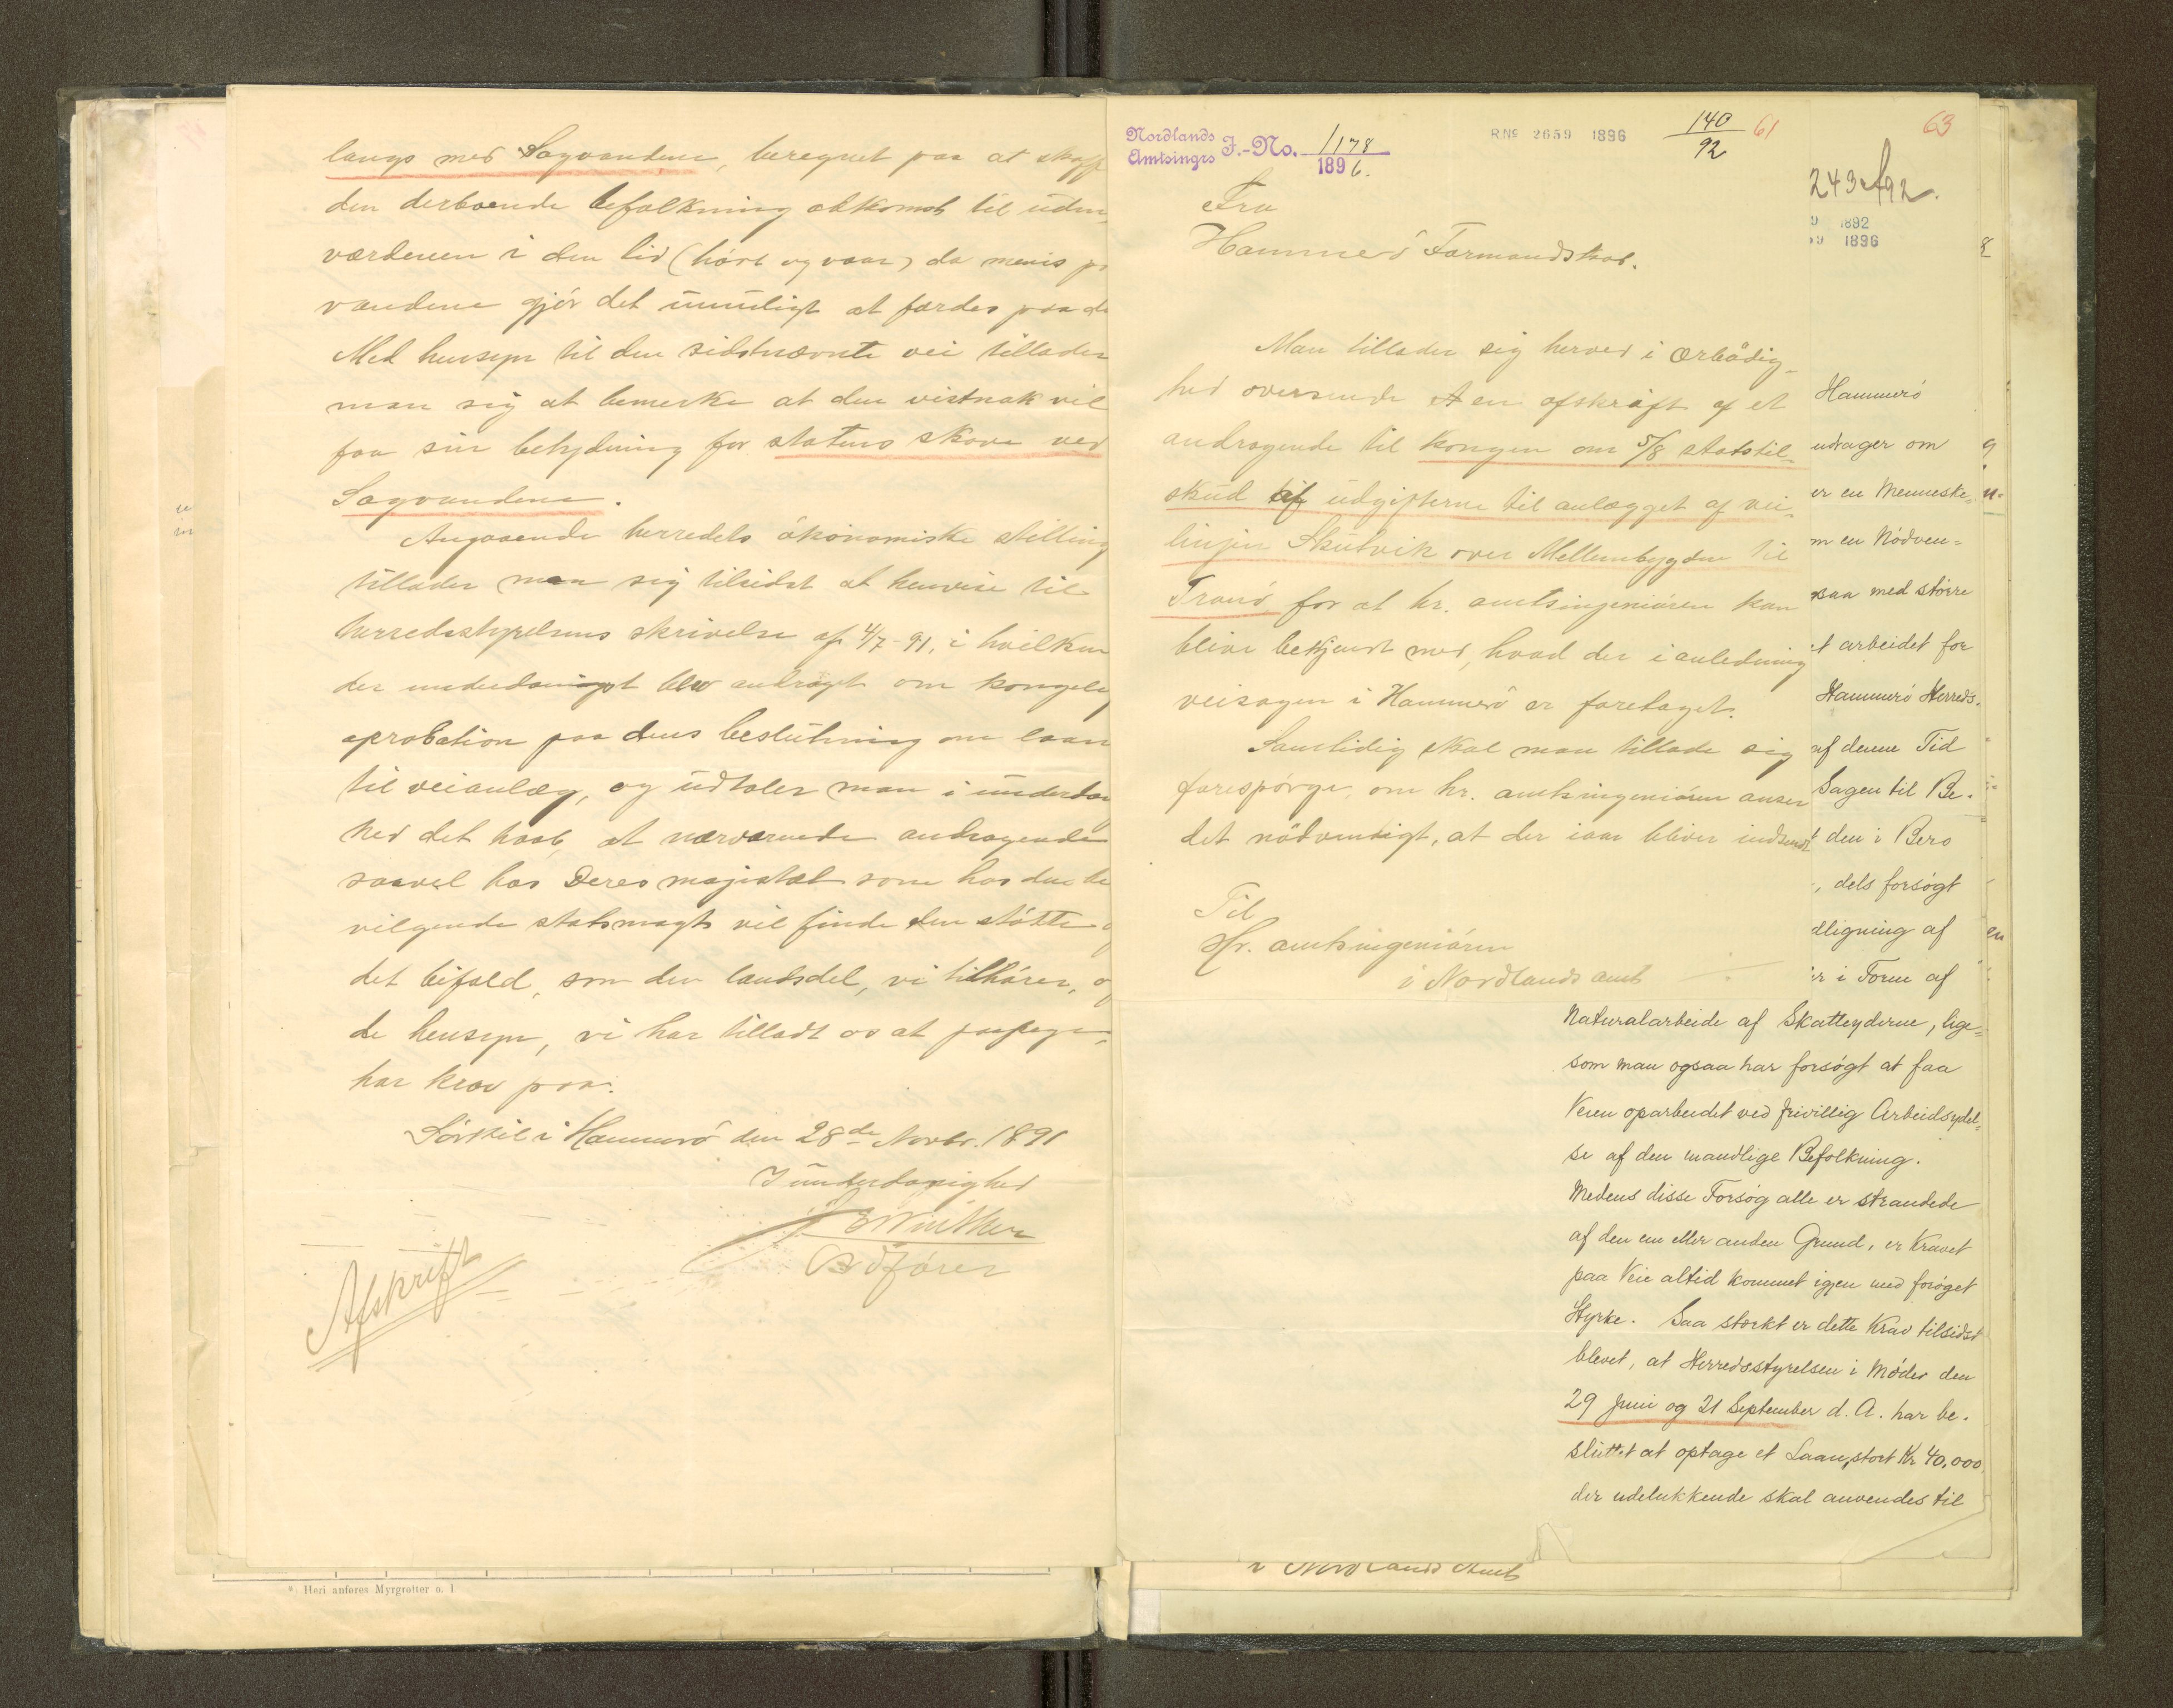 langs med Sagvandene, beregnet paa at skaff
den derboende befolkning atkomst til uden
verdenen i den tid (høst og vaar) da menis p
vandene gjør det umuligt at færdes paa de
Med hensyn til den sidstnævnte vei tillader
man sig at bemerke at den vistnok vil
faa sin betydning for statens skove ved
Sagvandene.
Angaaende herredets økonomiske stilling
tillader man sig tilsidst at henvise til
herredsstyrelsens skrivelse af 4/7-91, i hvilken
der underdanigst blev andragt om kongelig
aprobation paa dens beslutning om laan
til veianlæg, og udtaler man i underdan
hed det haab, at nærværende andragende
saavel hos Deres majestæt som hos den be
vilgende statsmagt vil finde den støtte o
det bifald, som den landsdel, vi tilhører, og
de hensyn, vi har tilladt os at paapege,
har krav paa.
Sørkil i Hammerø den 28de Novbr. 1891
I underdanighed
E Winther
Ordfører
Afskrift
*) Heri anføres Myrgrøfter o. l
Nordlands
Amtsingrs J.-No. 1178
1896.
RNo 2659 1896
140
92
61
Fra
Hammerø Formandskab.
Man tillader sig herved i ærbødig-
hed oversende en afskrift af et
andragende til kongen om 5/8 statstil-
skud af udgifterne til anlægget af vei-
linjen Skutvik over Mellembygden til
Tranø for at hr. amtsingeniøren kan
blive bekjendt med, hvad der i anledning
veisagen i Hammerø er foretaget.
Samtidig skal man tillade sig
forespørge, om hr. amtsingeniøren anser
det nødvendigt, at der iaar bliver indsendt
Til
Hr. amtsingeniøren
i Nordlands amt
63
243 A/92.
9 1892
59 1896
Hammerø
udrager om
er en Menneske=
m en Nødven=
saa med større
t arbeidet for
Hammerø Herreds.
af denne Tid
Sagen til Be.
t den i Bero
, dels forsøgt
dligning af
er i Form af
Naturalarbeide af Skatteyderne, lige=
som man ogsaa har forsøgt at faa
Veien oparbeidet ved frivillig Arbeidsydel=
se af den mandlige Befolkning.
Medens disse Forsøg alle er strandede
af den en eller anden Grund, er Kravet
paa Veie altid kommet igjen med forøget
Styrke. Saa stærkt er dette Krav tilsidst
blevet, at Herredsstyrelsen i Møder den
29 Juni og 21 September d. A. har be.
sluttet at optage et Laan, stort Kr 40,000
der udelukkende skal anvendes til
i Nordlands Amt